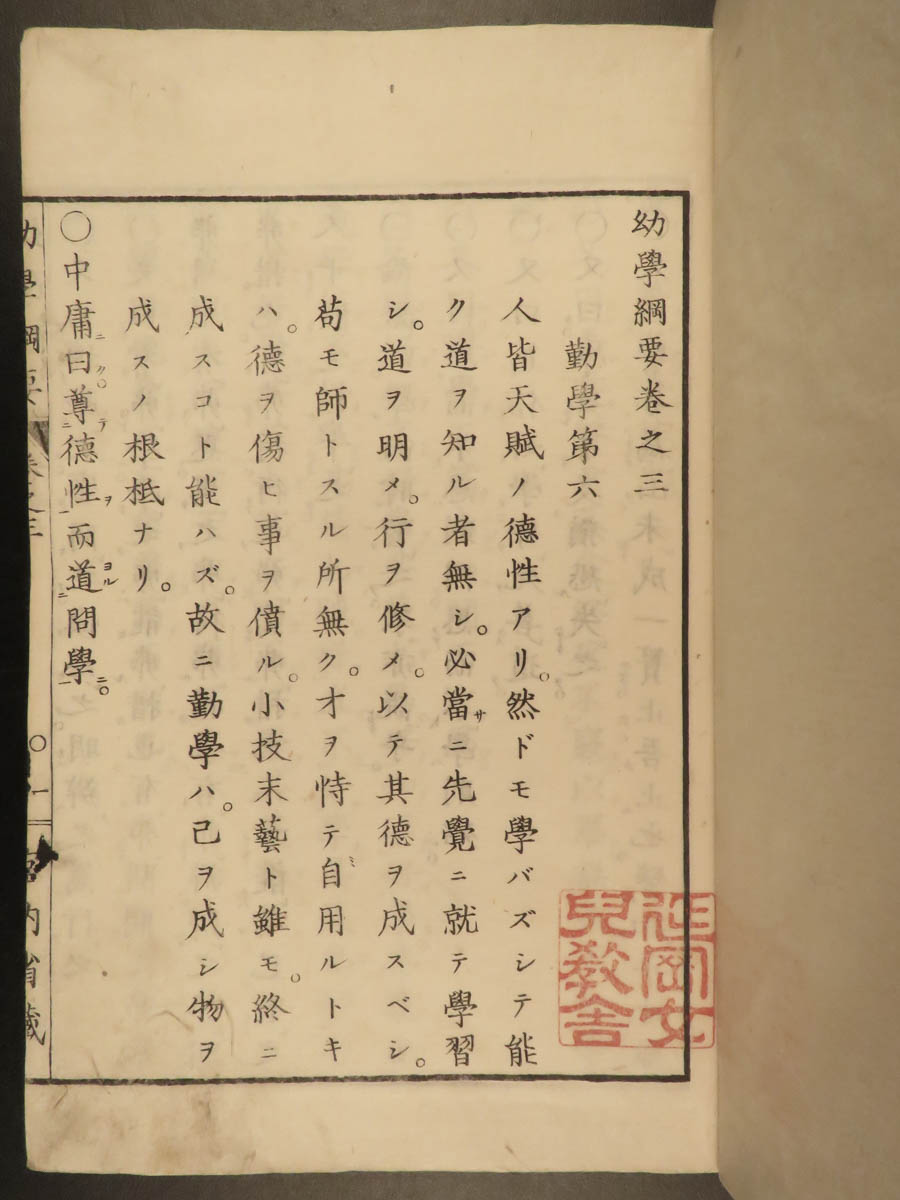 幼學綱要卷之三
勤學第六
人皆天賦ノ德性アリ。然ドモ學バズシテ能
ク道ヲ知ル者無シ。必當サニ先覺ニ就テ學習
シ。道ヲ明メ。行ヲ修メ。以テ其德ヲ成スベシ。
苟モ師トスル所無ク。才ヲ恃テ自ミ用ルトキ
ハ。德ヲ傷ヒ事ヲ僨ル。小技末藝ト雖モ。終ニ
成スコト能ハズ。故ニ勤學ハ。己ヲ成シ物ヲ
成スノ根柢ナリ。
〇中庸ニ曰ク。尊テ二德性ヲ一而道ヨル二問學ニ一。
幼學綱要 卷之三 〇 一 宮內省藏
女兒敎舍